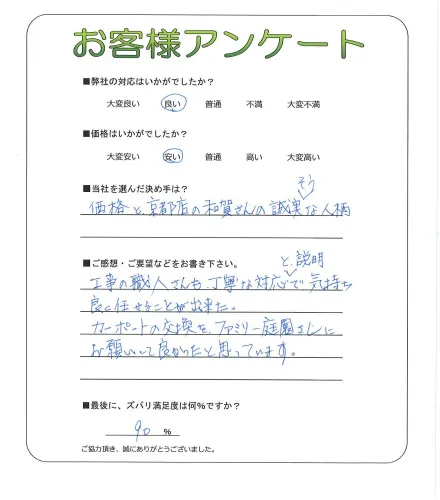 お客様アンケート
■弊社の対応はいかがでしたか?
大変良い 良い 普通 不満 大変不満
■価格はいかがでしたか?
大変安い 安い 普通 高い 大変高い
■当社を選んだ決め手は?
そう
価格と、京都店の和賀さんの誠実な人柄
■ご感想・ご要望などをお書き下さい。
と、説明
工事の職人さんも、丁寧な対応で気持ち
良く任せることが出来た。
カーポートの交換を、ファミリー庭園さんに
お願いして良かったと思っています。
■最後に、ズバリ満足度は何%ですか?
90 %
ご協力頂き、誠にありがとうございました。